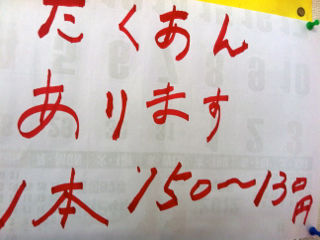 たくあん
あります
1本 150〜130円